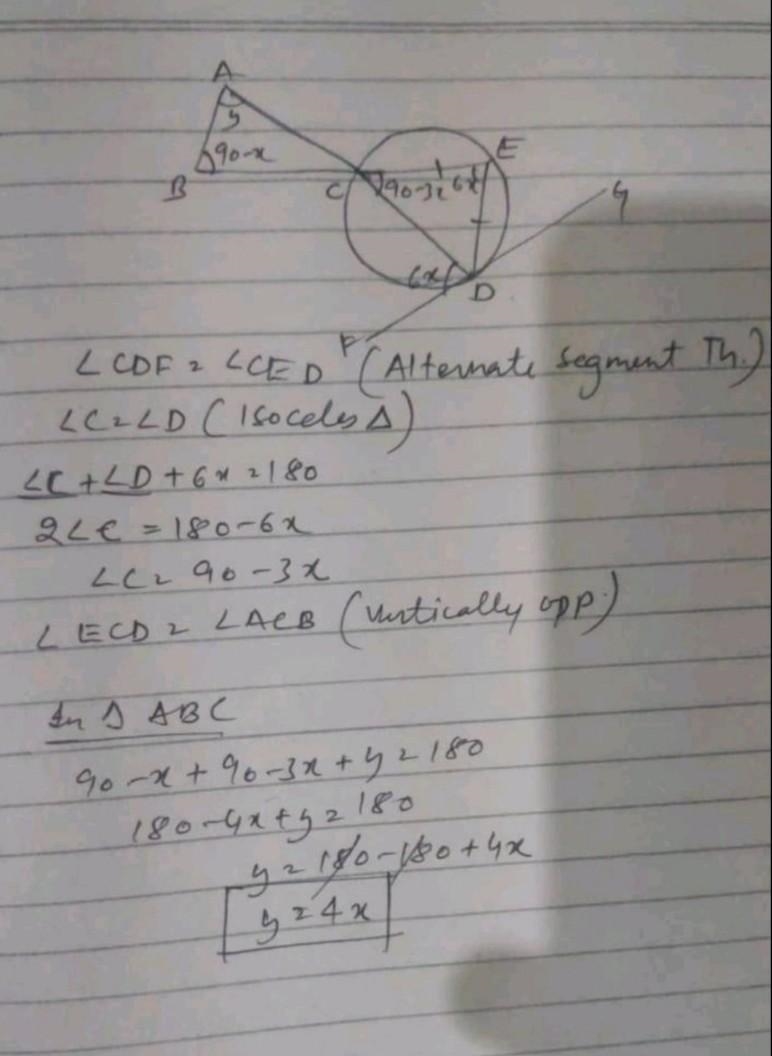 A
y
90-x
B
C
90-3x 6x
E
G
6x
D
F
∠CDF = ∠CED (Alternate segment Th.)
∠C = ∠D (Isoceles Δ)
∠C + ∠D + 6x = 180
2∠C = 180-6x
∠C = 90-3x
∠ECD = ∠ACB (Vertically opp.)
In Δ ABC
90-x + 90-3x + y = 180
180-4x+y = 180
y = 180-180+4x
y = 4x